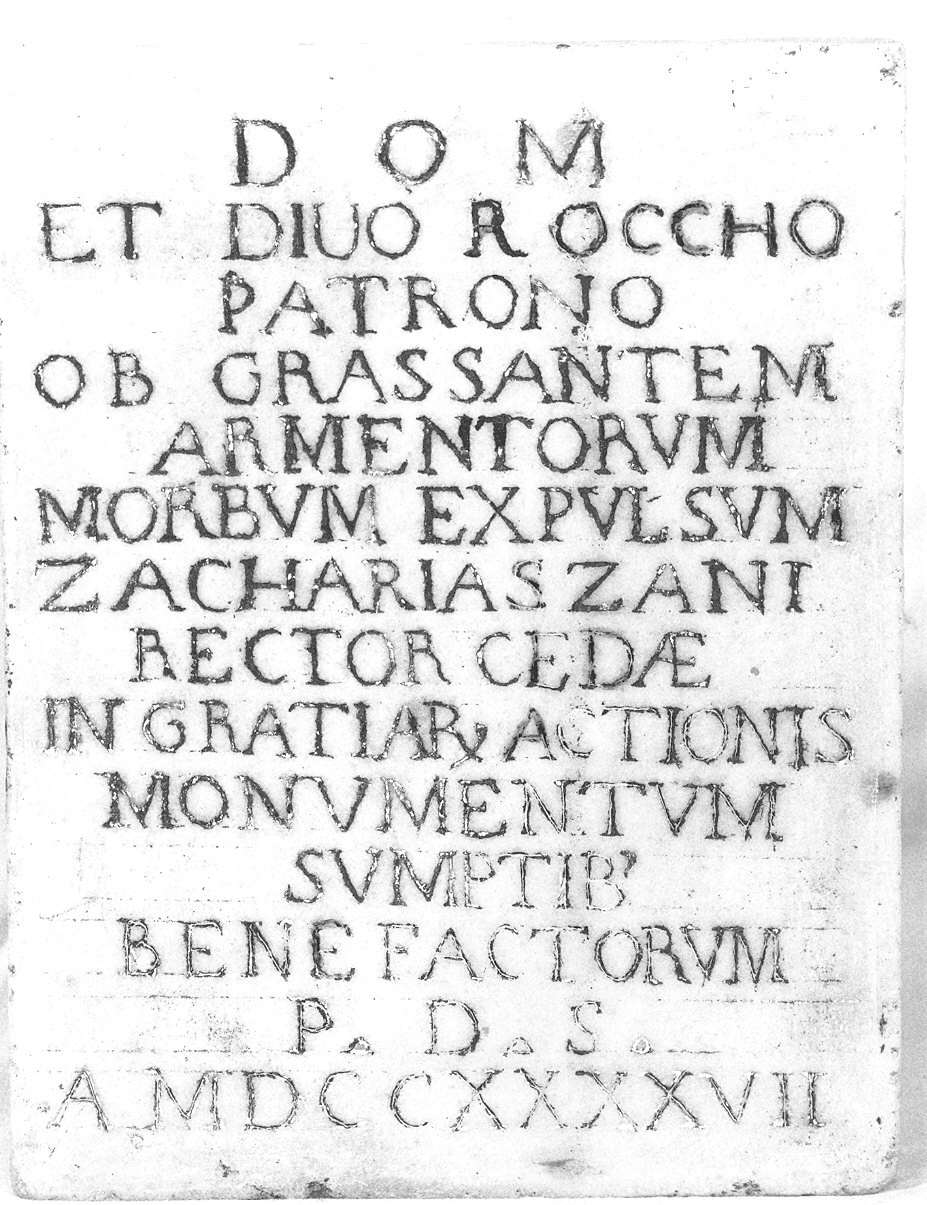 D O M
ET DIUO ROCCHO
PATRONO
OB GRASSANTEM
ARMENTORVM
MORBVM EXPVLSVM
ZACHARIAS ZANI
RECTOR CEDÆ
IN GRATIAꝜ ACTIONIS
MONVMENTVM
SVMPTIB'
BENEFACTORVM
P. D. S.
A MDCCXXXXVII